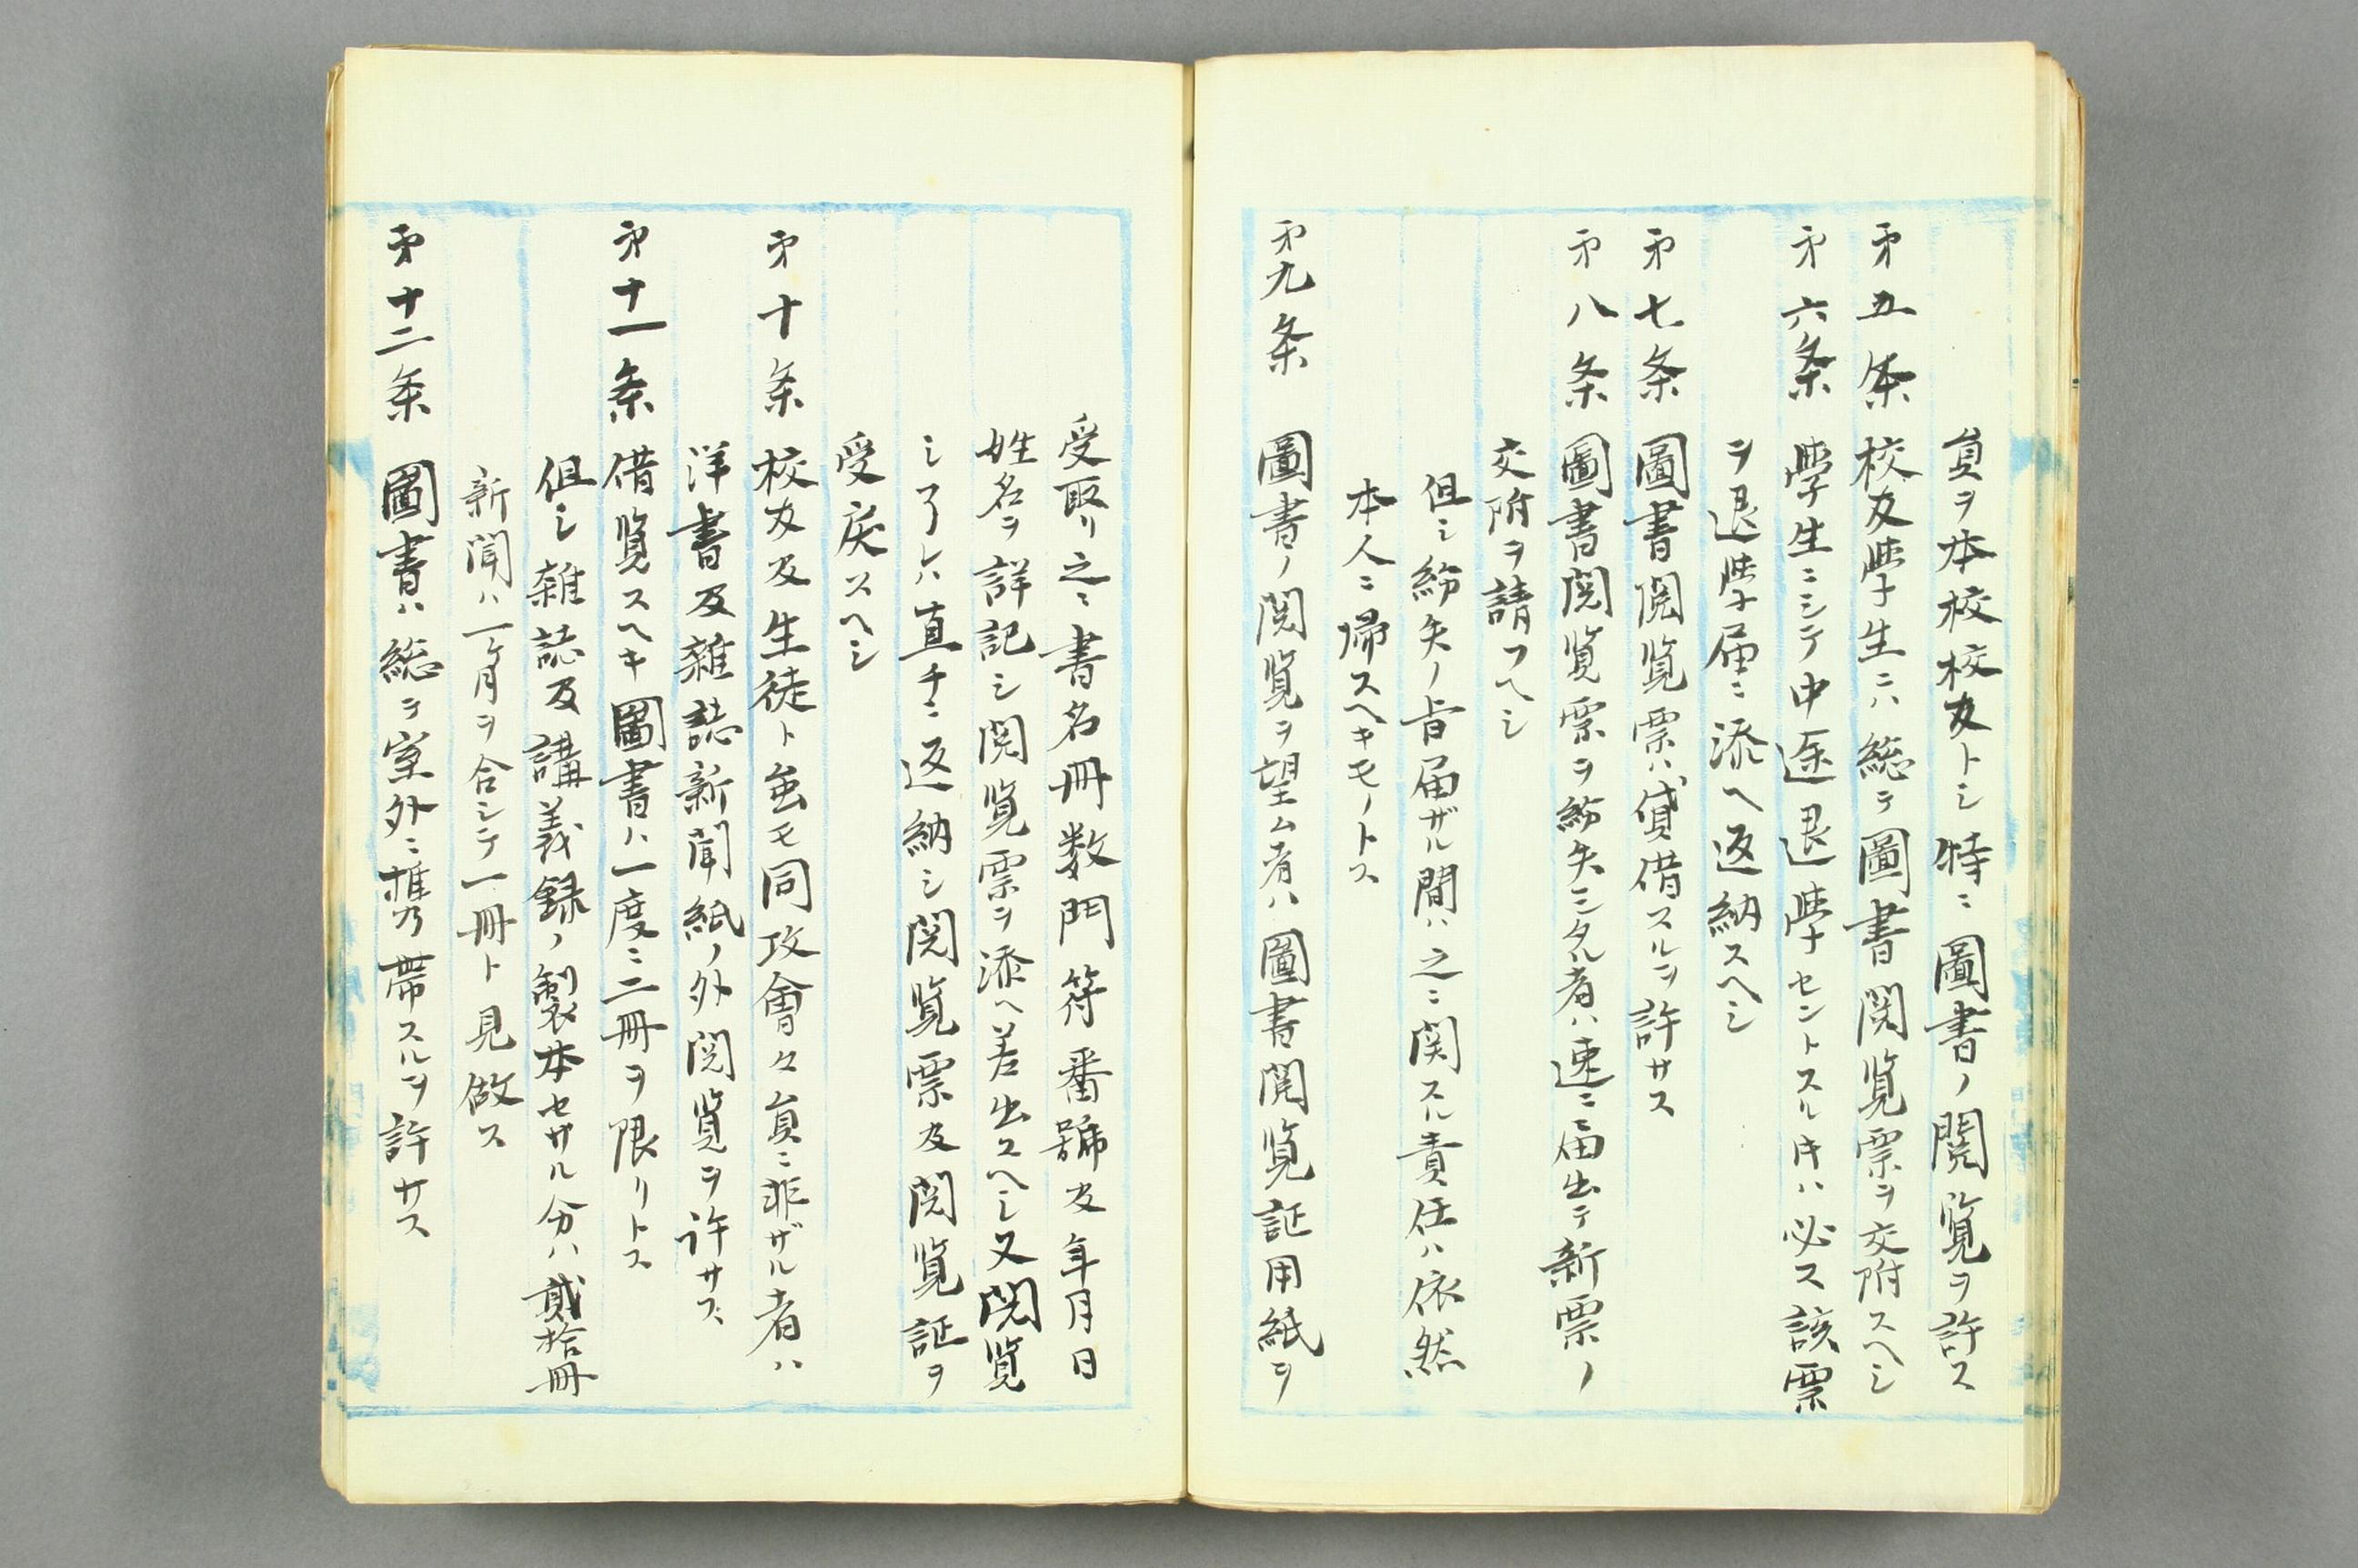 員ヲ本校校友トシ特ニ圖書ノ閲覧ヲ許ス
第五条 校友学生ニハ総テ圖書閲覧票ヲ交附スヘシ
第六条 学生ニシテ中途退学セントスルキハ必ス該票
ヲ退学届ニ添ヘ返納スヘシ
第七条 圖書閲覧票ハ貸借スルヲ許サス
第八条 圖書閲覧票ヲ紛失シタル者ハ速ニ届出テ新票ノ
交附ヲ請フヘシ
但シ紛失ノ旨届ザル間ハ之ニ関スル責任ハ依然
本人ニ帰スヘキモノトス
第九条 圖書ノ閲覧ヲ望ム者ハ圖書閲覧証用紙ヲ
受取リ之ニ書名冊数門符番號及年月日
姓名ヲ詳記シ閲覧票ヲ添ヘ差出スヘシ又閲覧
シ了レハ直チニ返納シ閲覧票及閲覧証ヲ
受戻スヘシ
第十条 校友及生徒ト虽モ同攻會々員ニ非ザル者ハ
洋書及雑誌新聞紙ノ外閲覧ヲ許サス
第十一条 借覧スヘキ圖書ハ一度ニ二冊ヲ限リトス
但シ雑誌及講義録ノ製本セザル分ハ貳拾冊
新聞ハ一ケ月ヲ合シテ一冊ト見做ス
第十二条 圖書ハ総テ室外ニ携帯スルヲ許サス